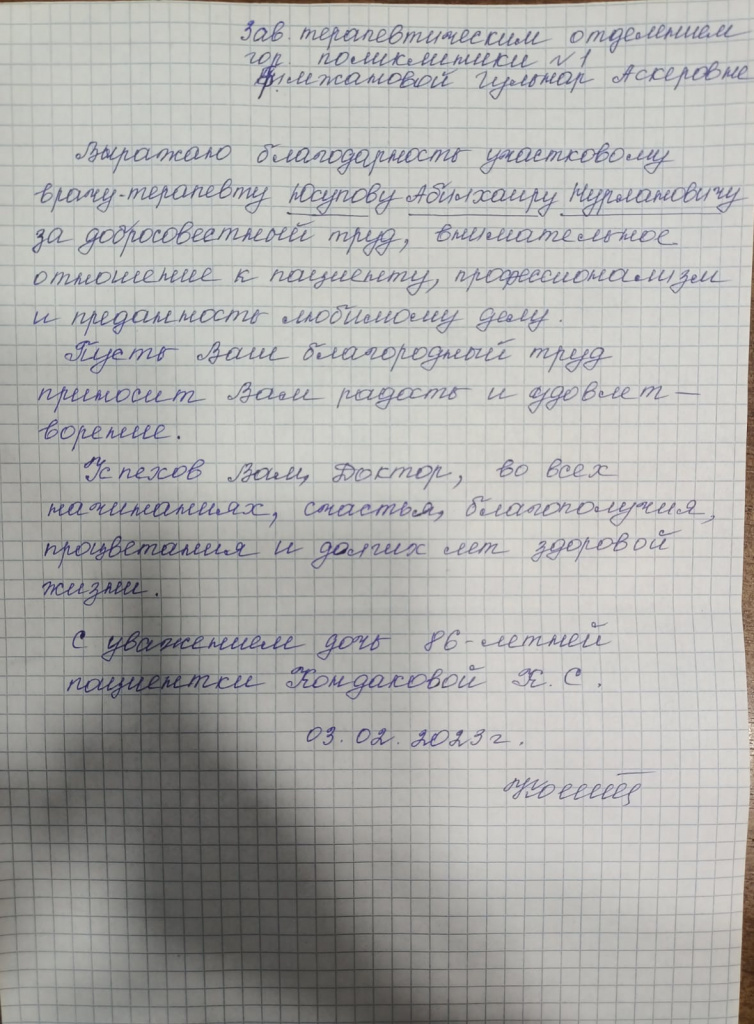 Зав. терапевтическим отделением
гор. поликлиники №1
Гульнар Аскеровне
Выражаю благодарность участковому
врачу-терапевту Юсупову Абилхаиру Нурлановичу
за добросовестный труд, внимательное
отношение к пациенту, профессионализм
и преданность любимому делу.
Пусть Ваш благородный труд
приносит Вам радость и удовлет-
ворение.
Успехов Вам, Доктор, во всех
начинаниях, счастья, благополучия,
процветания и долгих лет здоровой
жизни.
С уважением дочь 86-летней
пациентки Кондаковой К. С.
03.02.2023г.